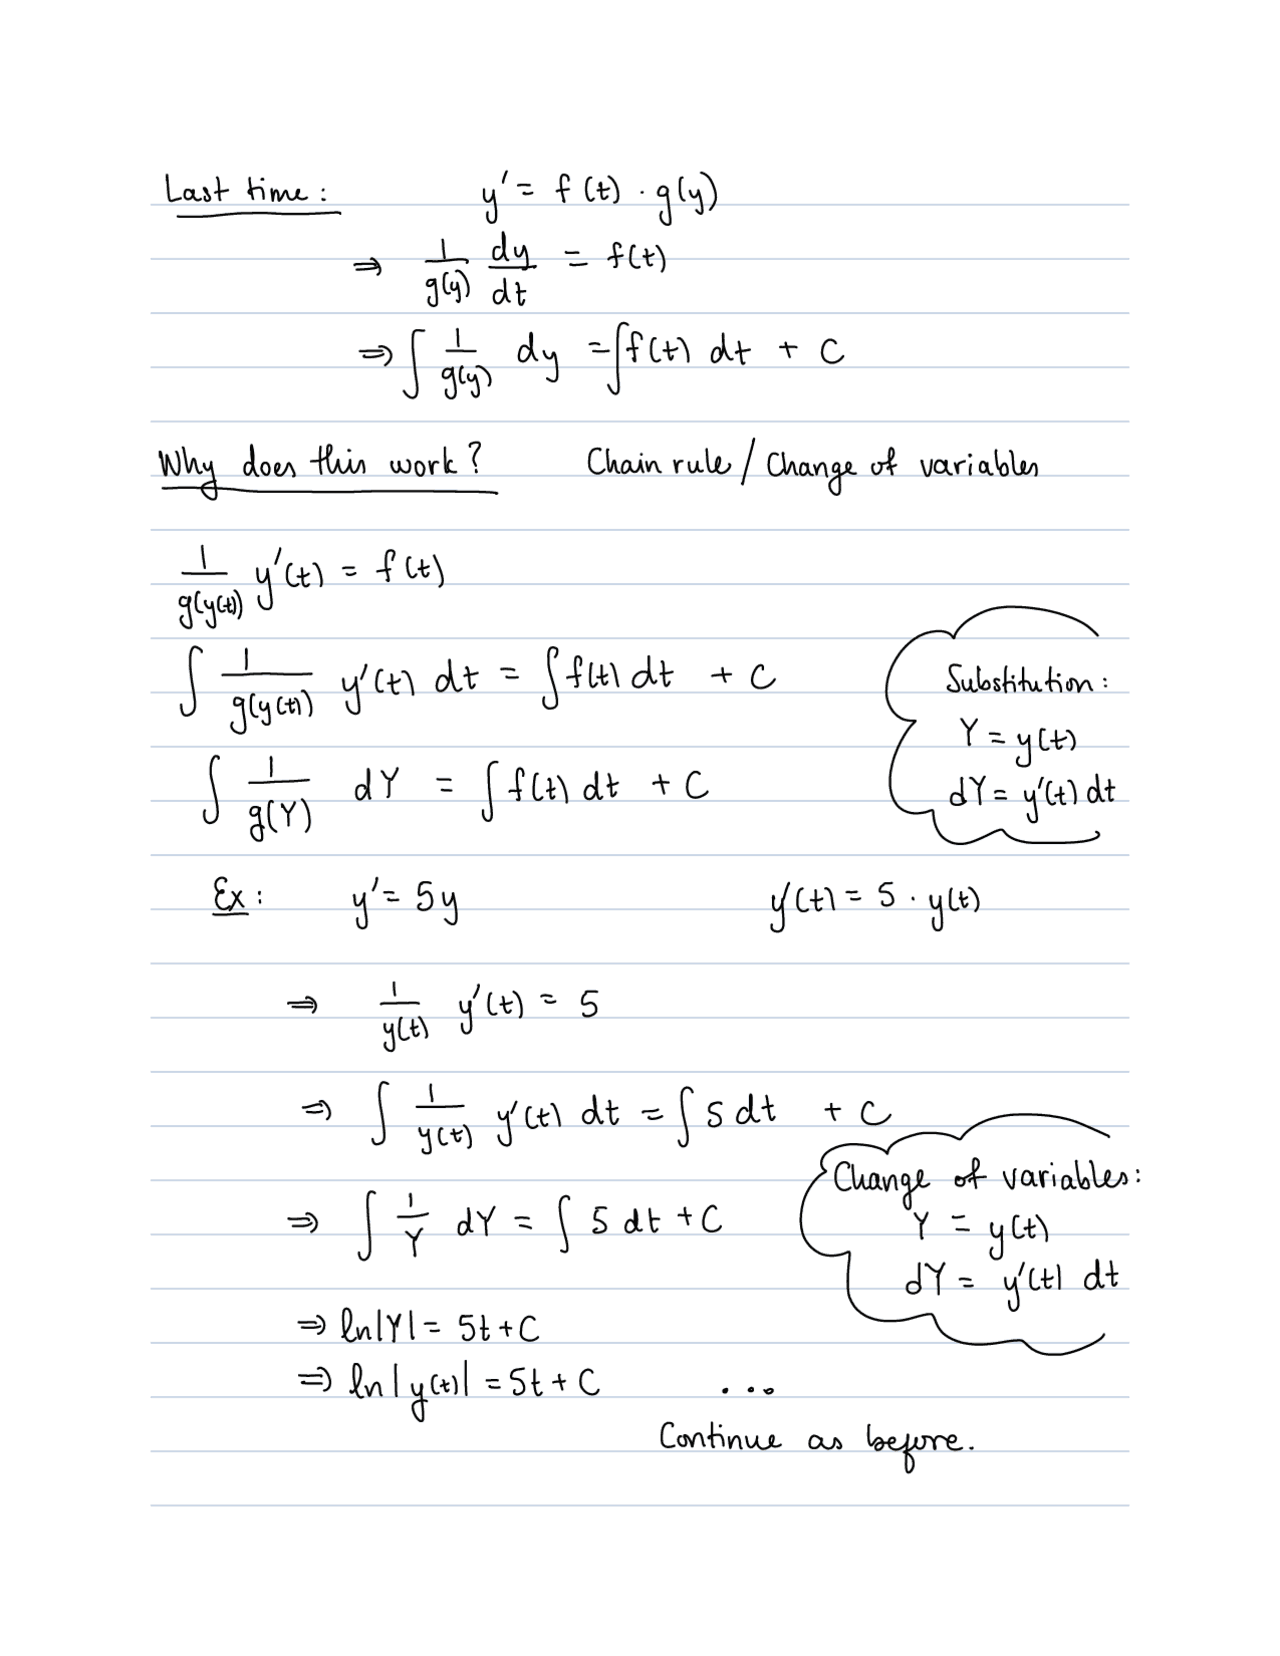 Last time: y' = f(t) · g(y)
⇒ 1/g(y) dy/dt = f(t)
⇒ ∫ 1/g(y) dy = ∫f(t) dt + C
Why does this work? Chain rule / Change of variables
1/g(y(t)) y'(t) = f(t)
∫ 1/g(y(t)) y'(t) dt = ∫f(t) dt + C
∫ 1/g(Y) dY = ∫f(t) dt + C
Substitution:
Y = y(t)
dY = y'(t) dt
Ex: y' = 5y y'(t) = 5 · y(t)
⇒ 1/y(t) y'(t) = 5
⇒ ∫ 1/y(t) y'(t) dt = ∫5 dt + C
⇒ ∫ 1/Y dY = ∫ 5 dt + C
Change of variables:
Y = y(t)
dY = y'(t) dt
⇒ ln|Y| = 5t + C
⇒ ln|y(t)| = 5t + C ...
Continue as before.